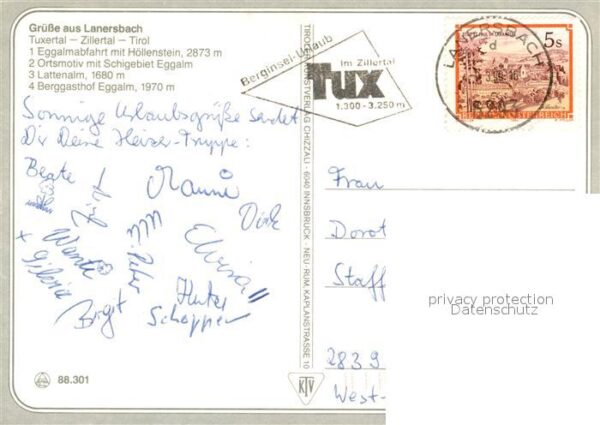 Grüße aus Lanersbach
Tuxertal – Zillertal – Tirol
1 Eggalmabfahrt mit Höllenstein, 2873 m
2 Ortsmotiv mit Schigebiet Eggalm
3 Lattenalm, 1680 m
4 Berggasthof Eggalm, 1970 m
Sonnige Urlaubsgrüße sendet
Dir Deine Heizer-Truppe:
Beate
Manni
Dirk
Ulli
Peter
Elvira
Silvia
Birgit
Schoppen
88.301
TIROLER KUNSTVERLAG CHIZZALI · 6040 INNSBRUCK - NEU-RUM, KAPLANSTRASSE 10
KTV
Berginsel-Urlaub
Im Zillertal
Tux
1.300 - 3.250 m
LANERSBACH
5s
REPUBLIK ÖSTERREICH
Frau
Dorot
Staff
2839
West-
privacy protection
Datenschutz